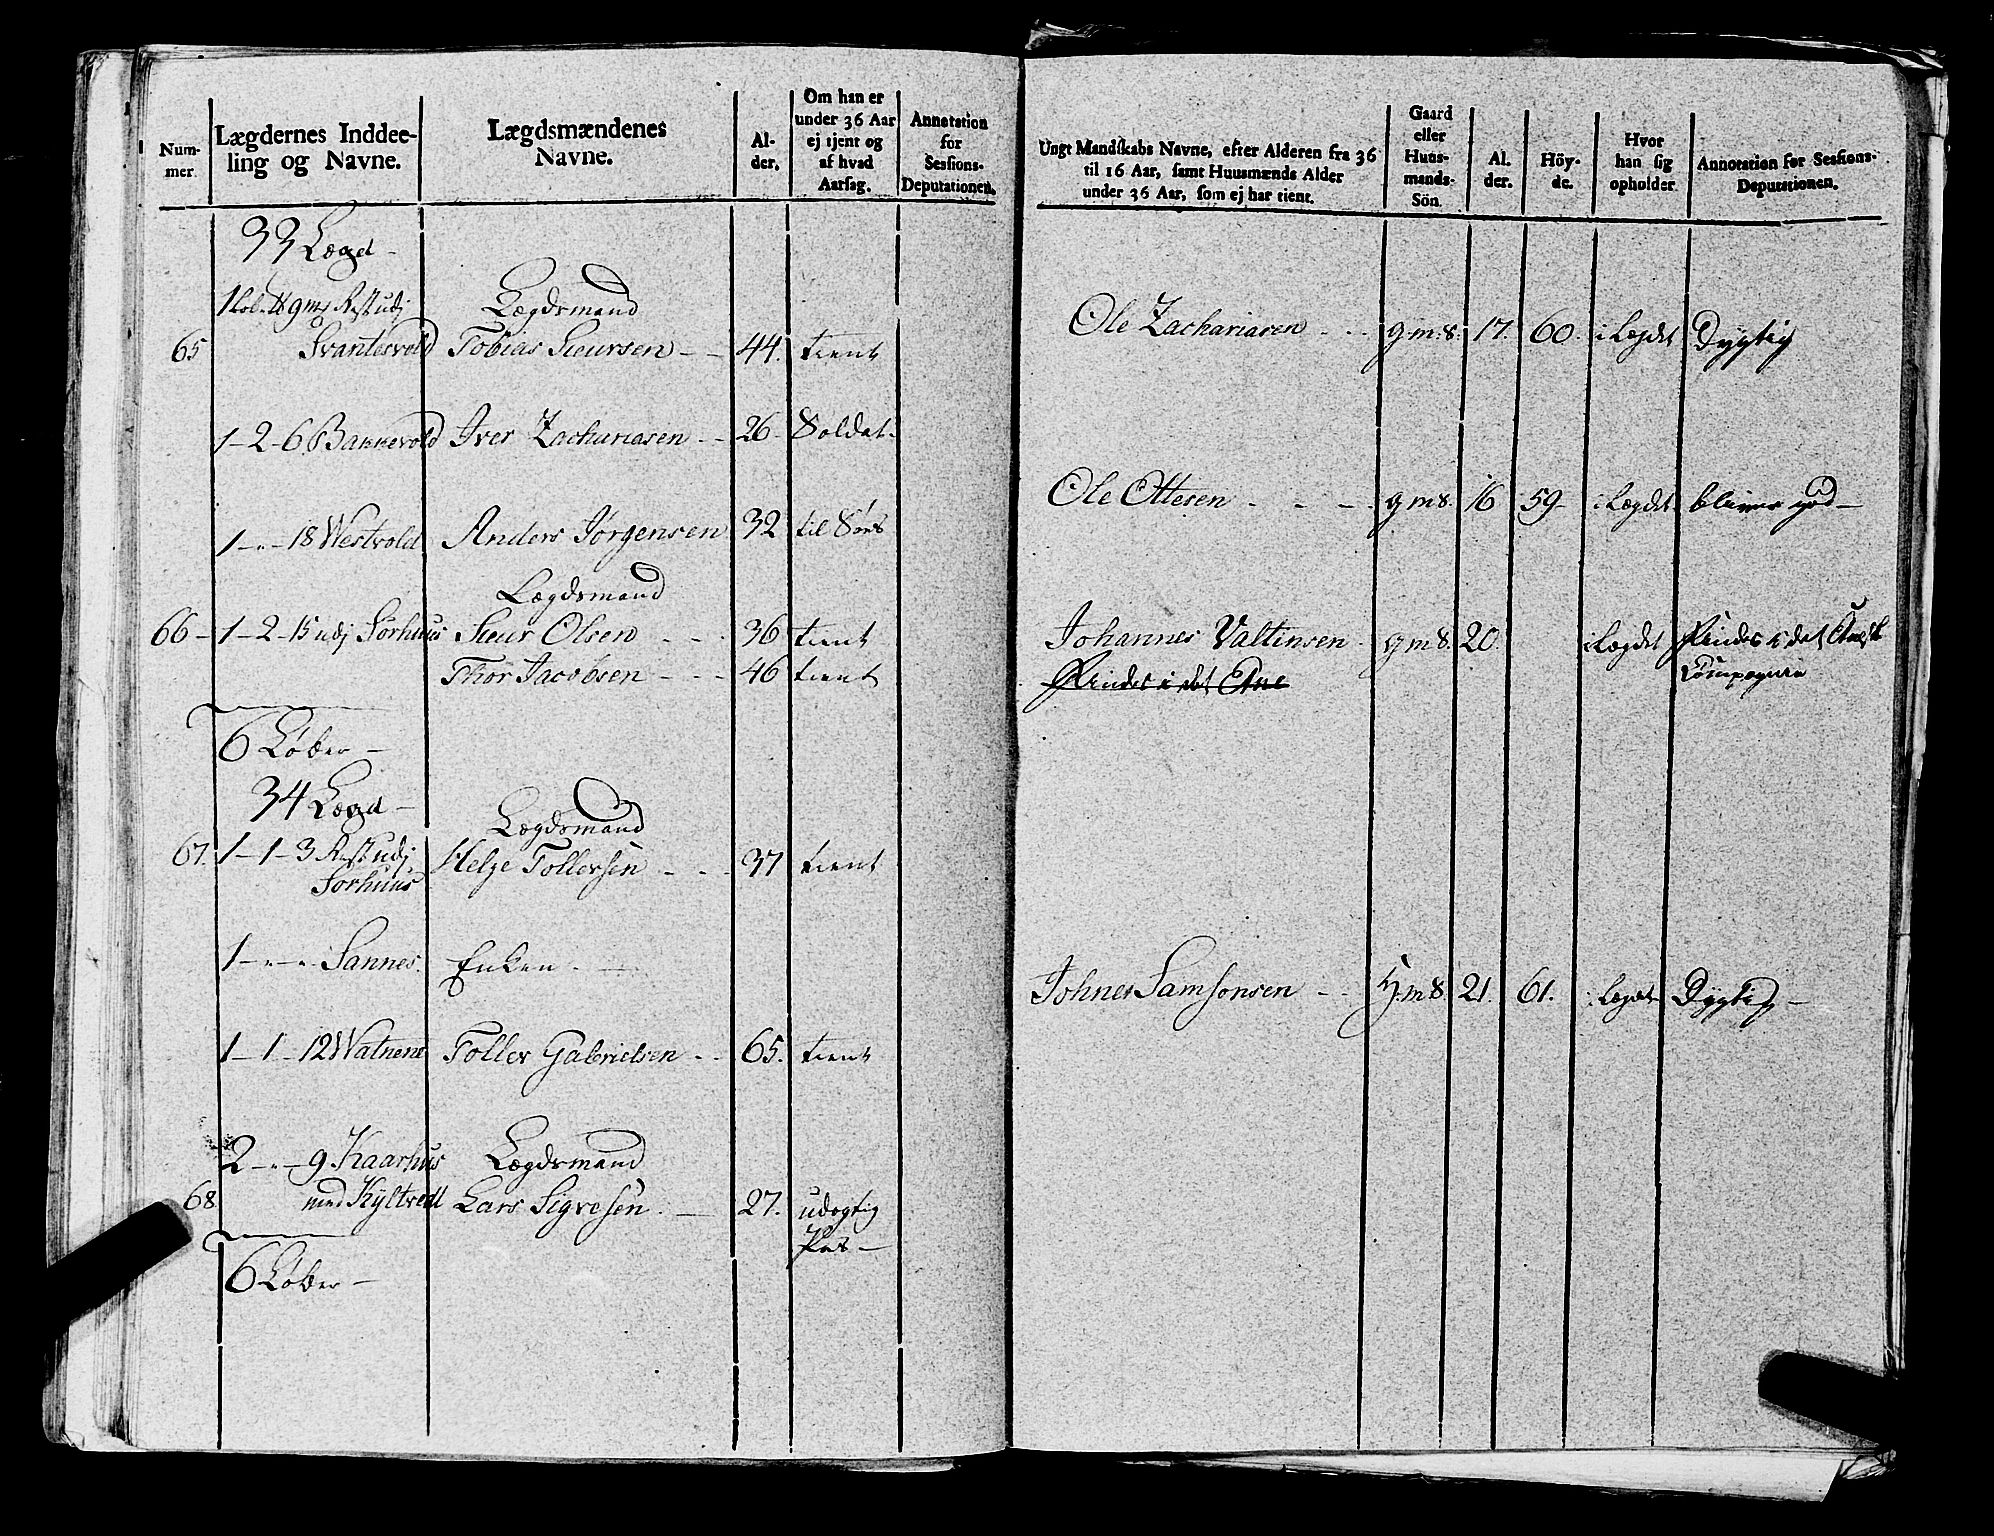 Num-
mer.
Lægdernes Inddee-
ling og Navne.
Lægdsmændenes
Navne.
Al-
der.
Om han er
under 36 Aar
ej tjent og
af hvad
Aarsag.
Annotation
for
Sessions-
Deputationen.
33 Lægd -
Rest udj Lægdsmand
65 Svantesvold Tobias Siursen - - 44. tient
1-2-6 Bannevold Iver Zachariasen - - 26 Soldat.
1-"-18 Westvold Anders Jørgensen 32 til Søes
Lægdsmand
66 - 1-2-15 udj Sørhuus Siur Olsen - - - 36 tient
Thor Jacobsen - - - 46 tient
6 Løber -
34 Lægd -
Lægdsmand
67. 1-1-3 Rest udj Helge Tollevsen - - - 37 tient
Sørhuus
1-"-" Sannes. Enken. -
1-1-12 Watnene Tollev Gabrielsen - - 65. tient
2-"-9 Kaarhus Lægdsmand
68 med Lars Sigvesen. - 27. udygtig
Pas -
6 Løber -
Ungt Mandskabs Navne, efter Alderen fra 36
til 16 Aar, samt Huusmænds Alder
under 36 Aar, som ej har tient.
Gaard
eller
Huus-
mands-
Sön.
Al-
der.
Höy-
de.
Hvor
han sig
opholder.
Annotation for Sessions-
Deputationen.
Ole Zachariasen - - - g m: s. 17. 60. i Lægdet Dygtig
Ole Ottesen - - - - g m s. 16 59 - i Lægdet bliver god -
Johannes Valtinsen - g m s. 20. i Lægdet Findes i det
Compagnie
Findes i det
Johnes Samsonsen - - H. m s. 21. 61. i Lægdet Dygtig -